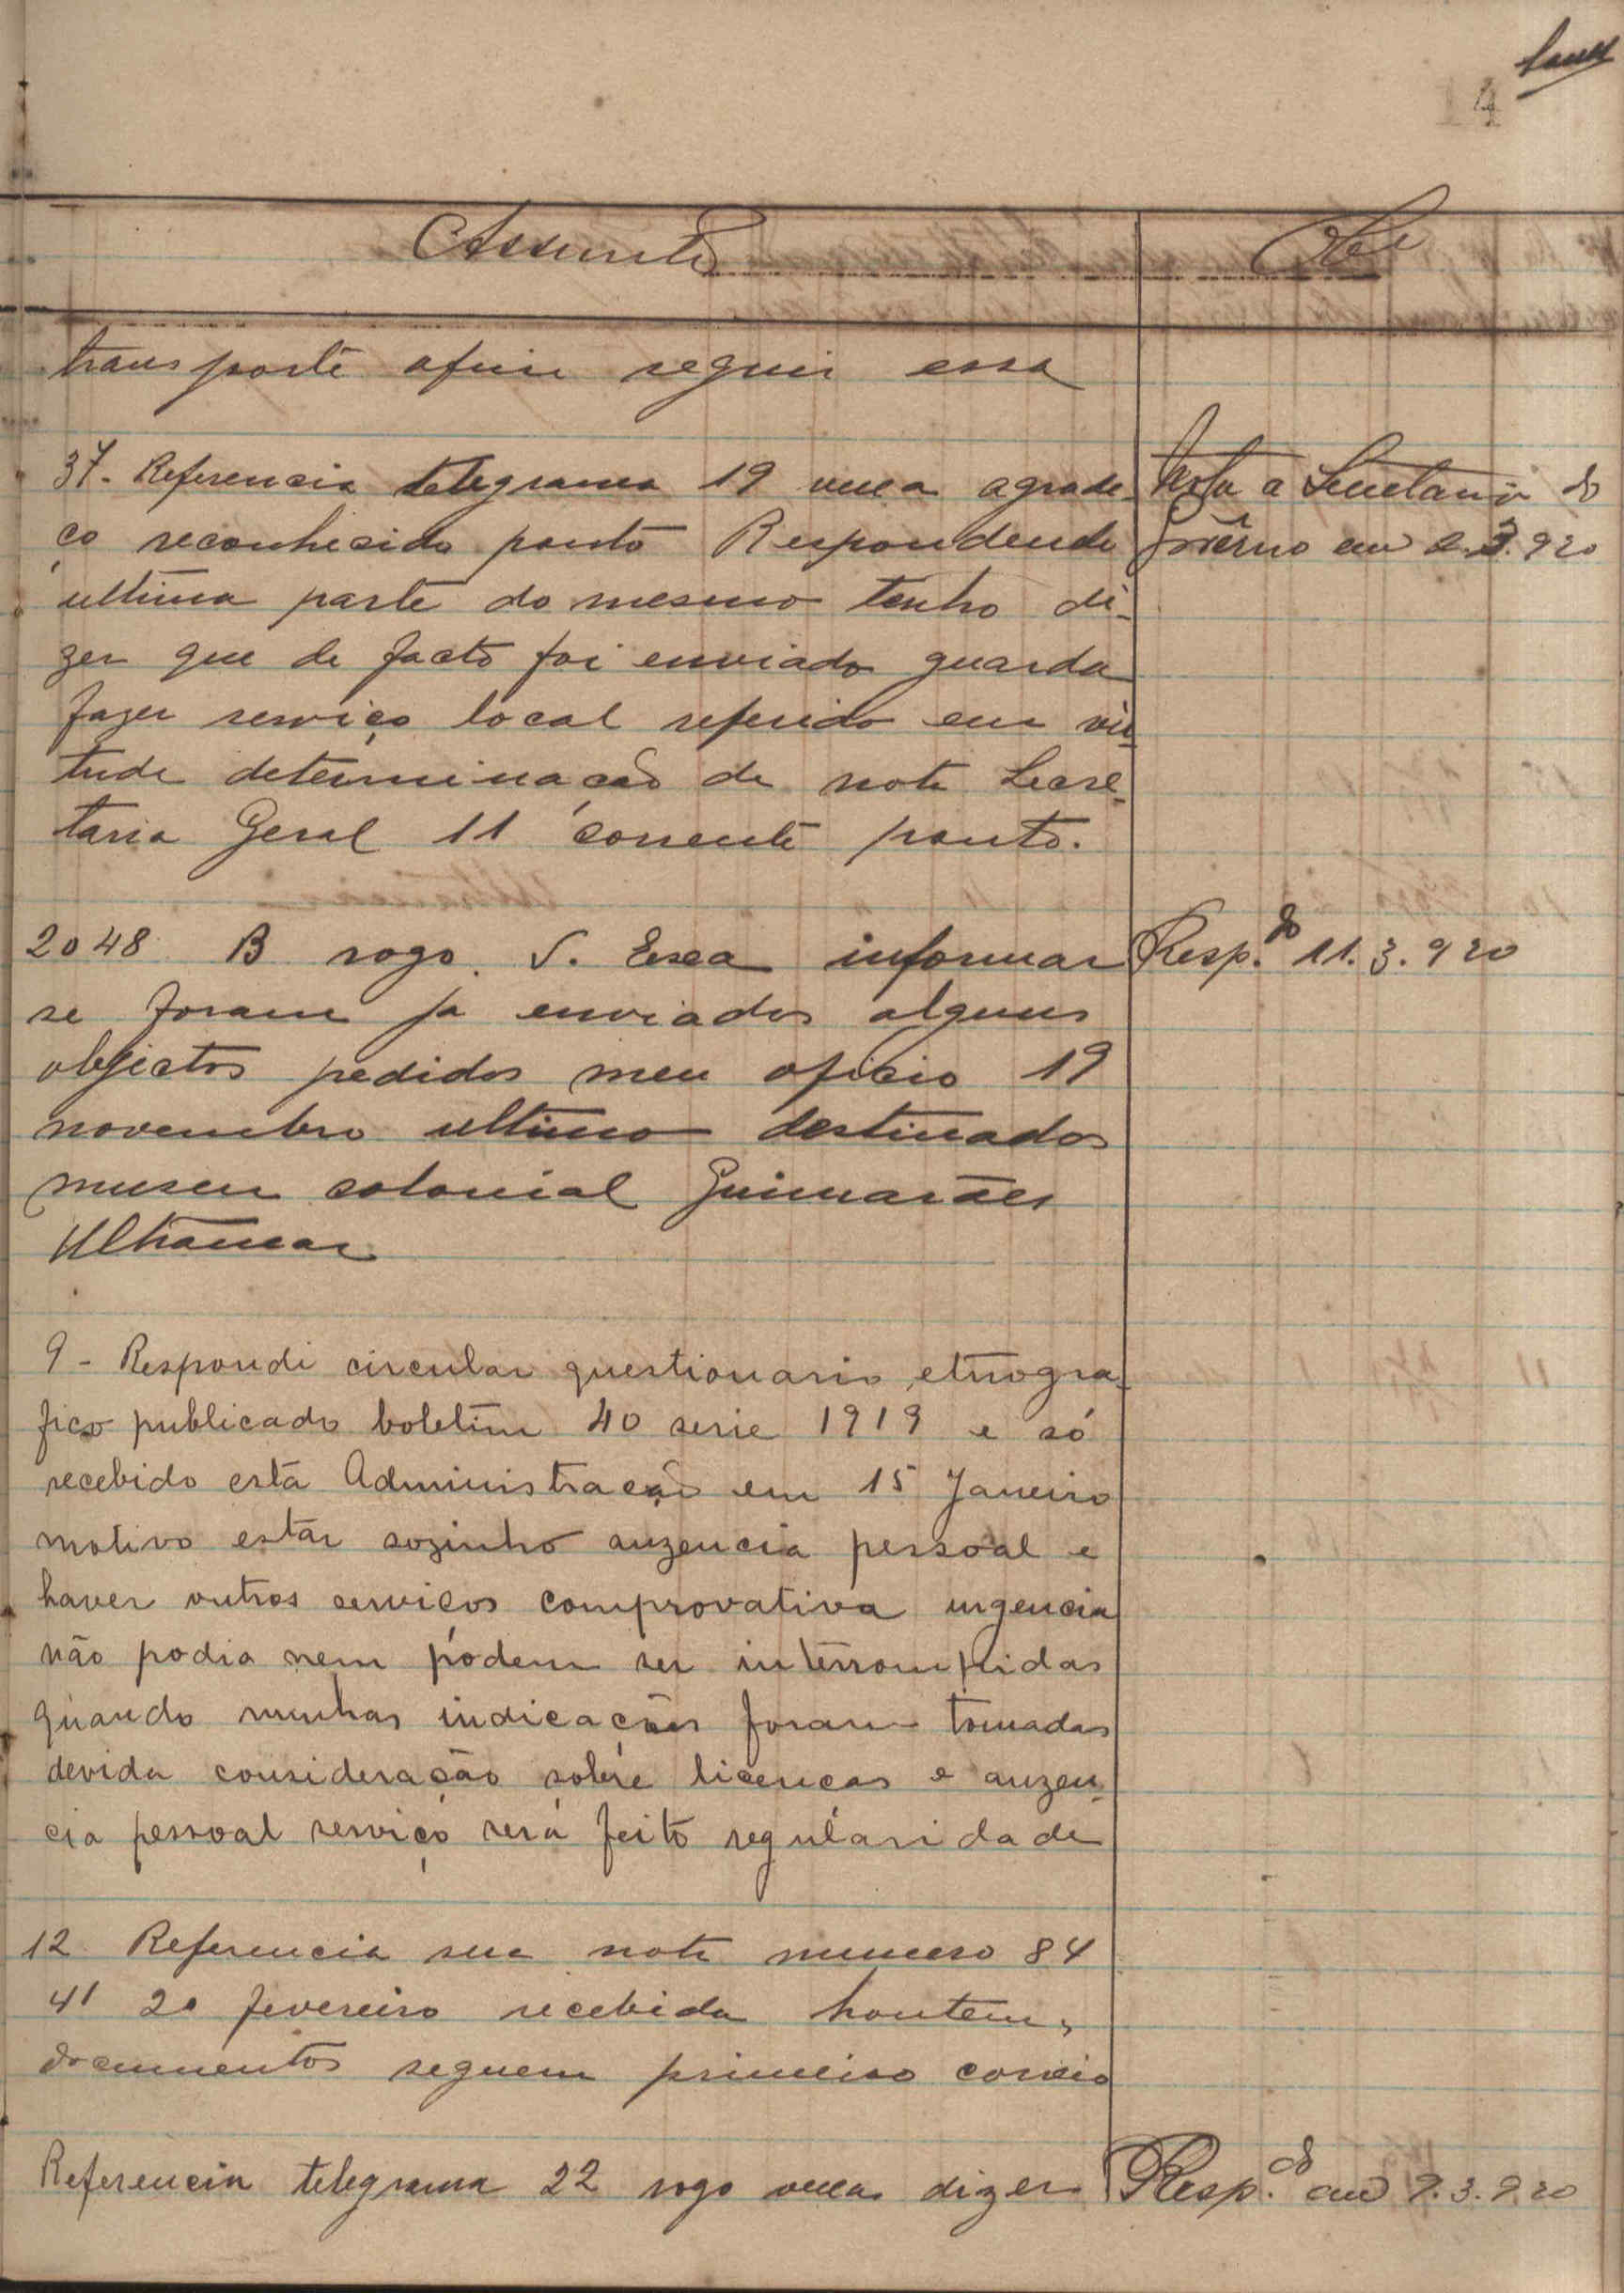 14
Assunto
Obs
transporte afim seguir essa
37. Referencia telegrama 19 vexa agrade-
Nota a Secretaria do
ço reconhecido ponto Respondendo
Govêrno em 2.3.920
ultima parte do mesmo tenho di-
zer que de facto foi enviado guarda
fazer serviço local referido em vir-
tude determinação de nota Secre-
taria Geral 11 corrente ponto.
2048 B rogo V. Exca informar
Resp.do 11.3.920
se foram ja enviados alguns
objectos pedidos meu oficio 19
novembro ultimo destinados
museu colonial Guimarães
Ultramar
9 - Respondi circular questionario etnogra-
fico publicado boletim 40 serie 1919 e só
recebido esta Administração em 15 Janeiro
motivo estar sozinho auzencia pessoal e
haver outros serviços comprovativa urgencia
não podia nem pódem ser interrompidas
quando minhas indicações foram tomadas
devida consideração sobre licenças e auzen-
cia pessoal serviço será feito regularidade
12 Referencia sua nota numero 84
41 20 fevereiro recebida hontem,
documentos seguem primeiro correio
Referencia telegrama 22 rogo vexa dizer
Resp.do em 9.3.920